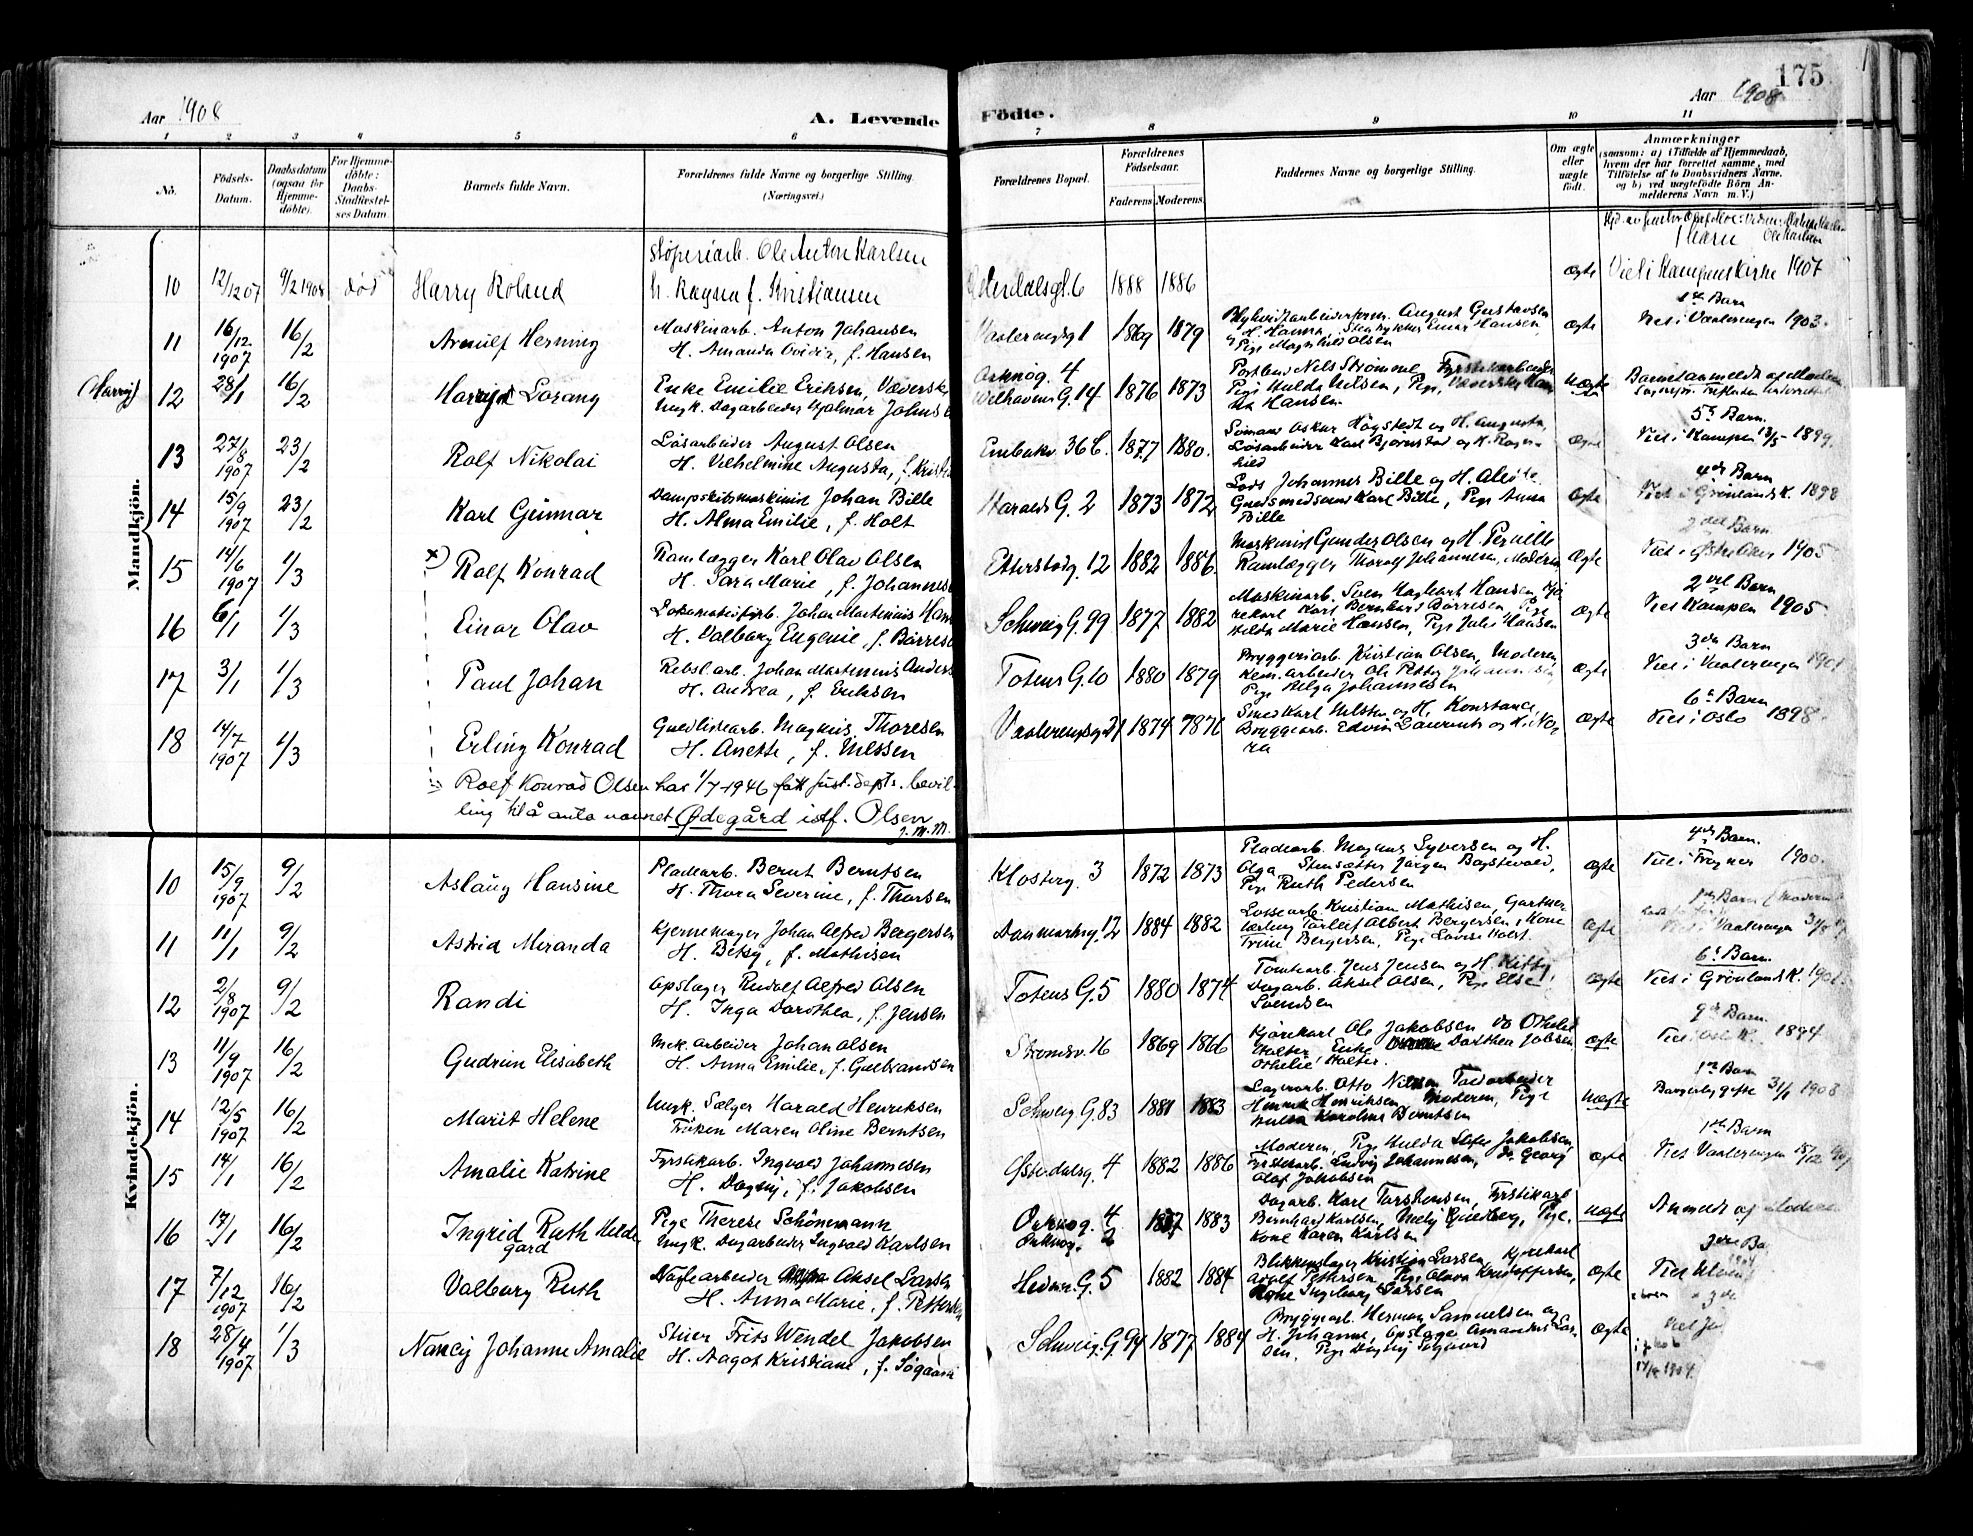 175
Aar 1908
A. Levende
Födte.
Aar 1908
1 2 3 4 5 6 7 8 9 10 11
No.
Födsels-Datum.
Daabsdatum (ogsaa for Hjemme-döbte).
For Hjemme-döbte: Daabs-Stadfæstel-ses Datum.
Barnets fulde Navn.
Forældrenes fulde Navne og borgerlige Stilling. (Næringsvei.)
Forældrenes Bopæl.
Forældrenes Födselsaar.
Faderens. Moderens.
Faddernes Navne og borgerlige Stilling.
Om ægte eller uægte födt.
Anmærkninger
(saasom: a) i Tilfælde af Hjemmedaab, hvem der har forrettet samme, med Tilföielse af to Daabsvidners Navne. og b) ved uægtefödte Börn An-melderens Navn m. V.)
Mandkjön.
Støperiarb. Ole Anton Karlsen
1 barn
10 12/12 07 9/2 1908 død Harry Roland
h. Ragna f. Kristiansen
Østerdalsgt. 6 1888 1886 Ægte Viet i Kampens kirke 1907
11 16/12 1907 16/2 Arnulf Henning
Maskinarb. Anton Johansen
H. Amanda Ovidia, f. Hansen
Vaalerengsg 1 1869 1879
Blyhvidtarbeiderform. August Gustavsen
H. Hanna, Stenhugger Einar Hansen,
Pige Magnhild Olsen
Ægte
Viet i Vaalerengen 1903.
(Harry) 12 28/1 16/2 Harry Lorang
Enke Emilie Eriksen, Væverske
Ungk. Dagarbeider Hjalmar Johns
Orknøg. 4
Welhavens G. 14 1876 1873
Postbud Nels Strømme, Fyrstikarbeider
Pige Hulda Nilsen, Pige,
Hansen
Uægte
Barnet anmeldt af Moderen
13 27/8 1907 23/2 Rolf Nikolai
Løsarbeider August Olsen
H. Vilhelmine Augusta, f. Krist
Enebakv. 36 b. 1877 1880.
Sømand Oskar Høgstedt og H. Augusta,
Løsarbeider Karl Bjørnstad og H. Ragn-
hild
Ægte
5te Barn.
Viet i Kampen 13/5 - 1899.
14 15/9 1907 23/2 Karl Gunnar
Dampskibsmaskinist Johan Bille
H. Alma Emilie, f. Holt
Haralds G. 2 1873 1872
Lods Johannes Bille og H. Alida
Guldsmedsvend Karl Bille, Pige Anna
Bille
Ægte
4de Barn
Viet i Grønlands K. 1898
15 14/6 1907 1/3 x) Rolf Konrad
Ramlægger Karl Olav Olsen
H. Sara Marie, f. Johannes
Etterstadg. 12 1882 1886.
Maskinist Gunder Olsen og H. Pernille
Ramlægger Thorolf Johannesen, Moderen
Ægte
2det Barn
1905
16 6/1 1/3 Einar Olav
Lokomotivfyrb. Johan Martinius Han
H. Valborg Eugenie, f. Børrese
Schweig G. 99 1877 1882
Maskinarb. Sven Hagbart Hansen, Kjø
rekarl Karl Bernhard Børresen, Pige
Hilda Marie Hansen, Pige Julie Hansen
Ægte
2det Barn
Viet Kampen 1905
17 3/1 1/3 Paul Johan
Rebsl. arb. Johan Martinius Anders
H. Andrea, f. Eriksen
Totens G. 10 1880 1879
Bryggeriarb. Kristian Olsen, Moderen
Kem. arbeider Ole Petter Johannesen
Pige Helga Johannesen
Ægte
3de Barn
Viet i Vaalerengen 1901
18 14/7 1907 1/3 Erling Konrad
Guldlistearb. Magnus Thoresen
H. Anette, f. Nilssen
Vaalerengsg 21 1874 1876
Smed Karl Nilsen og H. Konstance,
Bryggearb. Edvin Laurents og H. No-
ra
Ægte
6te Barn
Viet i Oslo 1898.
Rolf Konrad Olsen har 1/7-1946 fått just. depts. bevil-
ling til å anta navnet Ødegård istf. Olsen
J. M. M.
Kvindekjön.
10 15/9 1907 9/2 Aslaug Hansine
Pladearb. Bernt Berntsen
H. Thora Severine, f. Thorsen
Klosterg. 3 1872 1873
Pladearb. Magnus Syversen og H.
Olga Stensætter Jørgen Bogstevold,
Pige Ruth Pedersen
Ægte
4de Barn.
Viet i Frogner 1900.
11 11/1 9/2 Astrid Miranda
Gjernemager Johan Alfred Bergersen
H. Betsy, f. Mathisen
Danmarksg. 12 1884 1882
Lossearb Kristian Mathisen, Gartner
lærling Torleif Albert Bergersen, Kone
Trine Bergersen, Pige Lovise Holst.
Ægte
1ste Barn (Moderen
Viet i Vaalerengen
12 2/8 1907 9/2 Randi
Opslager Rudolf Alfred Olsen
H. Inga Dorothea, f. Jensen
Totens G. 5 1880 1874
Tomtearb. Jens Jensen og H. Kitty,
Dagarb. Aksel Olsen, Pige Else
Svendsen
Ægte
6te Barn.
Viet i Grønlands K. 1901.
13 11/9 1907 16/2 Gudrun Elisabeth
Mek. arbeider Johan Olsen
H. Anna Emilie, f. Gulbrandsen
Strømsv. 16 1869 1866
Kjørekarl Ole Jakobsen og Othelie
Halter, Enke Dorthea Jobsen,
Othelie Halter.
Ægte
9de Barn.
1894
14 12/5 1907 16/2 Marit Helene
Ungk. Sælger Harald Henriksen
Frøken Maren Oline Berntsen
Schweig G. 83 1881 1883
Lagerarb. Otto Nilsen, Toldarbeider
Henrik Henriksen, Moderen, Pige
Hulda Karoline Berntsen
uægte
1ste Barn
Borgerlig gifte 31/1 1908
15 14/1 16/2 Amalie Katrine
Fyrstikarb. Ingvald Johannesen
H. Dagny, f. Jakobsen
Østerdalsg. 4 1882 1886
Moderen, Pige Hulda Jakobsen,
Fyrstikarb. Ludvig Johannesen, do Georg
Olaf Jakobsen
Ægte
1ste Barn
Viet Vaalerengen 15/12 1907
16 17/1 16/2 Ingrid Ruth Hilde
gard
Pige Therese Schönemann
Ungk. Dagarbeider Ingvald Karlsen
Orknøg. 4
Orknøg. 2 1887 1883
Dagarb. Karl Torstensen, Fyrstikarb
Bernhard Karlsen, Nely Guldberg, Pige,
Kone Karen Karlsen
uægte
Anmeldt af Moderen
17 7/12 1907 16/2 Valborg Ruth
Naglearbeider Aksel Larsen
H. Anna Marie, f. Pettersen
Hedm. G. 5 1882 1884
Blikkenslager Kristian Larsen, Kjørekarl
Adolf Pettersen, Pige Olava Kristoffersen,
Kone Ingeborg Larsen
Ægte
3die Ba
Viet
18 28/4 1907 1/3 Nancy Johanne Amalie
Stuer Frits Wendel Jakobsen
H. Aagot Kristiane, f. Søgaard
Schweig. G. 94 1877 1884
Bryggearb. Herman Samuelsen og
H. Johanne, Opslager Amandus Lar-
sen, Pige Dagny Søgaard
Ægte